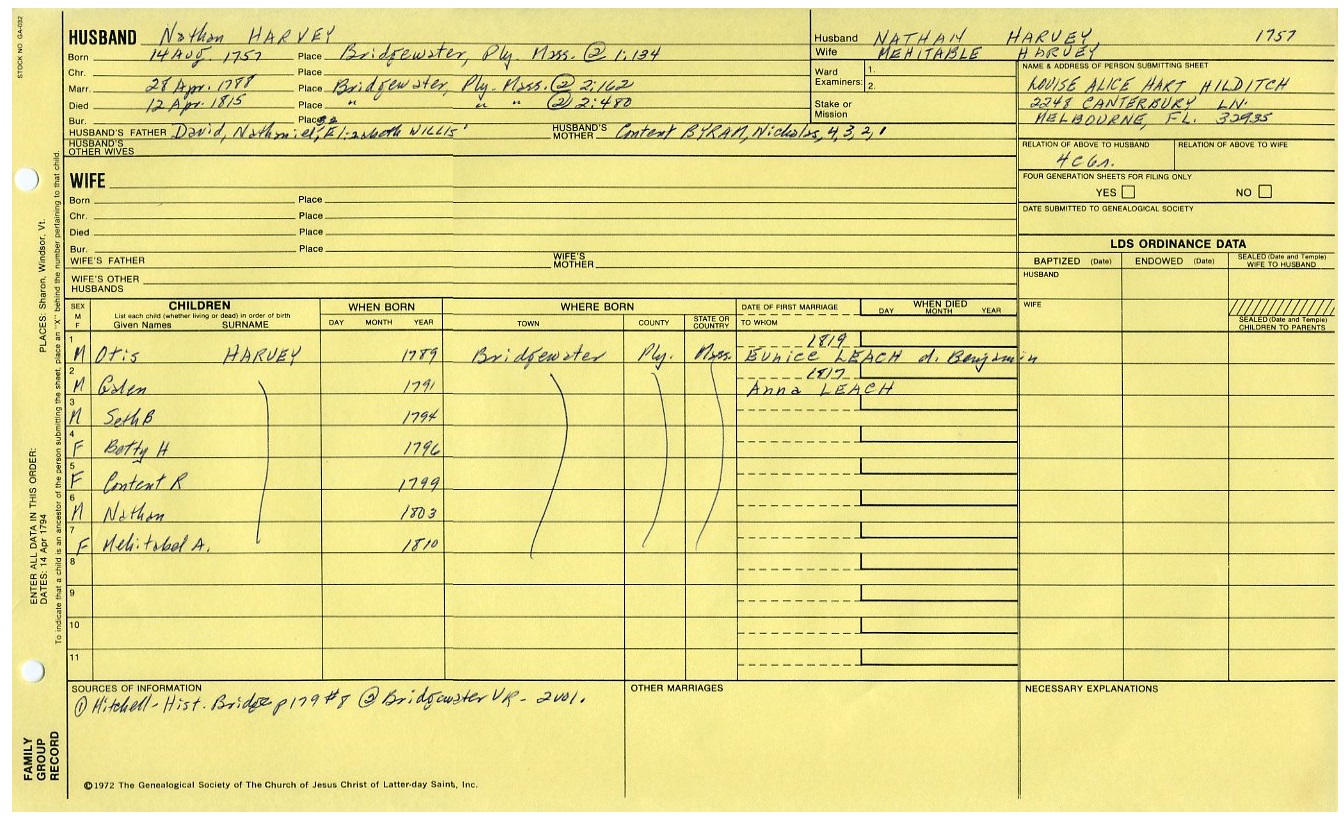 STOCK NO. GA-032
PLACES: Sharon, Windsor, Vt.
ENTER ALL DATA IN THIS ORDER:
DATES: 14 Apr 1794
To indicate that a child is an ancestor of the person submitting the sheet, place an "X" behind the number pertaining to that child.
FAMILY
GROUP
RECORD
HUSBAND Nathan HARVEY
Born 14 Aug. 1757 Place Bridgewater, Ply. Mass. ② 1:134
Chr. Place
Marr. 28 Apr. 1788 Place Bridgewater, Ply. Mass. ② 2:162
Died 12 Apr. 1815 Place " " " ② 2:480
Bur. Place
HUSBAND'S FATHER David, Nathaniel, Elizabeth WILLIS HUSBAND'S MOTHER Content BYRAM, Nicholas, 4, 3, 2, 1
HUSBAND'S OTHER WIVES
WIFE
Born Place
Chr. Place
Died Place
Bur. Place
WIFE'S FATHER WIFE'S MOTHER
WIFE'S OTHER HUSBANDS
Husband NATHAN HARVEY 1757
Wife MEHITABLE HARVEY
Ward Examiners: 1.
2.
Stake or Mission
NAME & ADDRESS OF PERSON SUBMITTING SHEET
LOUISE ALICE HART HILDITCH
2248 CANTERBURY LN.
MELBOURNE, FL. 32935
RELATION OF ABOVE TO HUSBAND RELATION OF ABOVE TO WIFE
4C6r.
FOUR GENERATION SHEETS FOR FILING ONLY
YES NO
DATE SUBMITTED TO GENEALOGICAL SOCIETY
LDS ORDINANCE DATA
BAPTIZED (Date) ENDOWED (Date) SEALED (Date and Temple) WIFE TO HUSBAND
HUSBAND
WIFE
SEALED (Date and Temple) CHILDREN TO PARENTS
SEX M F CHILDREN WHEN BORN WHERE BORN DATE OF FIRST MARRIAGE WHEN DIED
List each child (whether living or dead) in order of birth
Given Names SURNAME DAY MONTH YEAR TOWN COUNTY STATE OR COUNTRY TO WHOM DAY MONTH YEAR
1 1819
M Otis HARVEY 1789 Bridgewater Ply. Mass. Eunice LEACH d. Benjamin
2 1817
M Galen 1791 Anna LEACH
3
M Seth B 1794
4
F Betty H 1796
5
F Content R 1799
6
M Nathan 1803
7
F Mehitabel A. 1810
8
9
10
11
SOURCES OF INFORMATION OTHER MARRIAGES NECESSARY EXPLANATIONS
① Mitchell - Hist. Bridge p179 #8 ② Bridgewater VR - 2vol.
©1972 The Genealogical Society of The Church of Jesus Christ of Latter-day Saints, Inc.